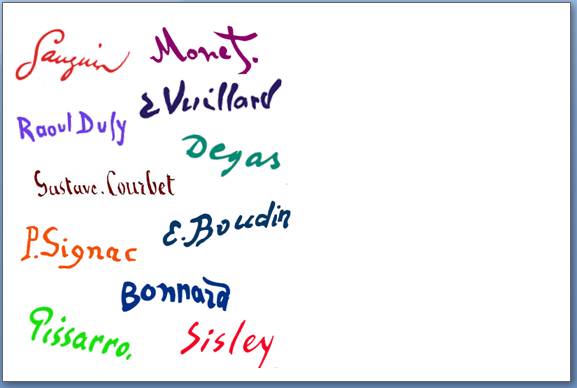 Gauguin
Monet.
E Vuillard
Raoul Dufy
Degas
Gustave. Courbet
E. Boudin
P. Signac
Bonnard
Pissarro.
Sisley